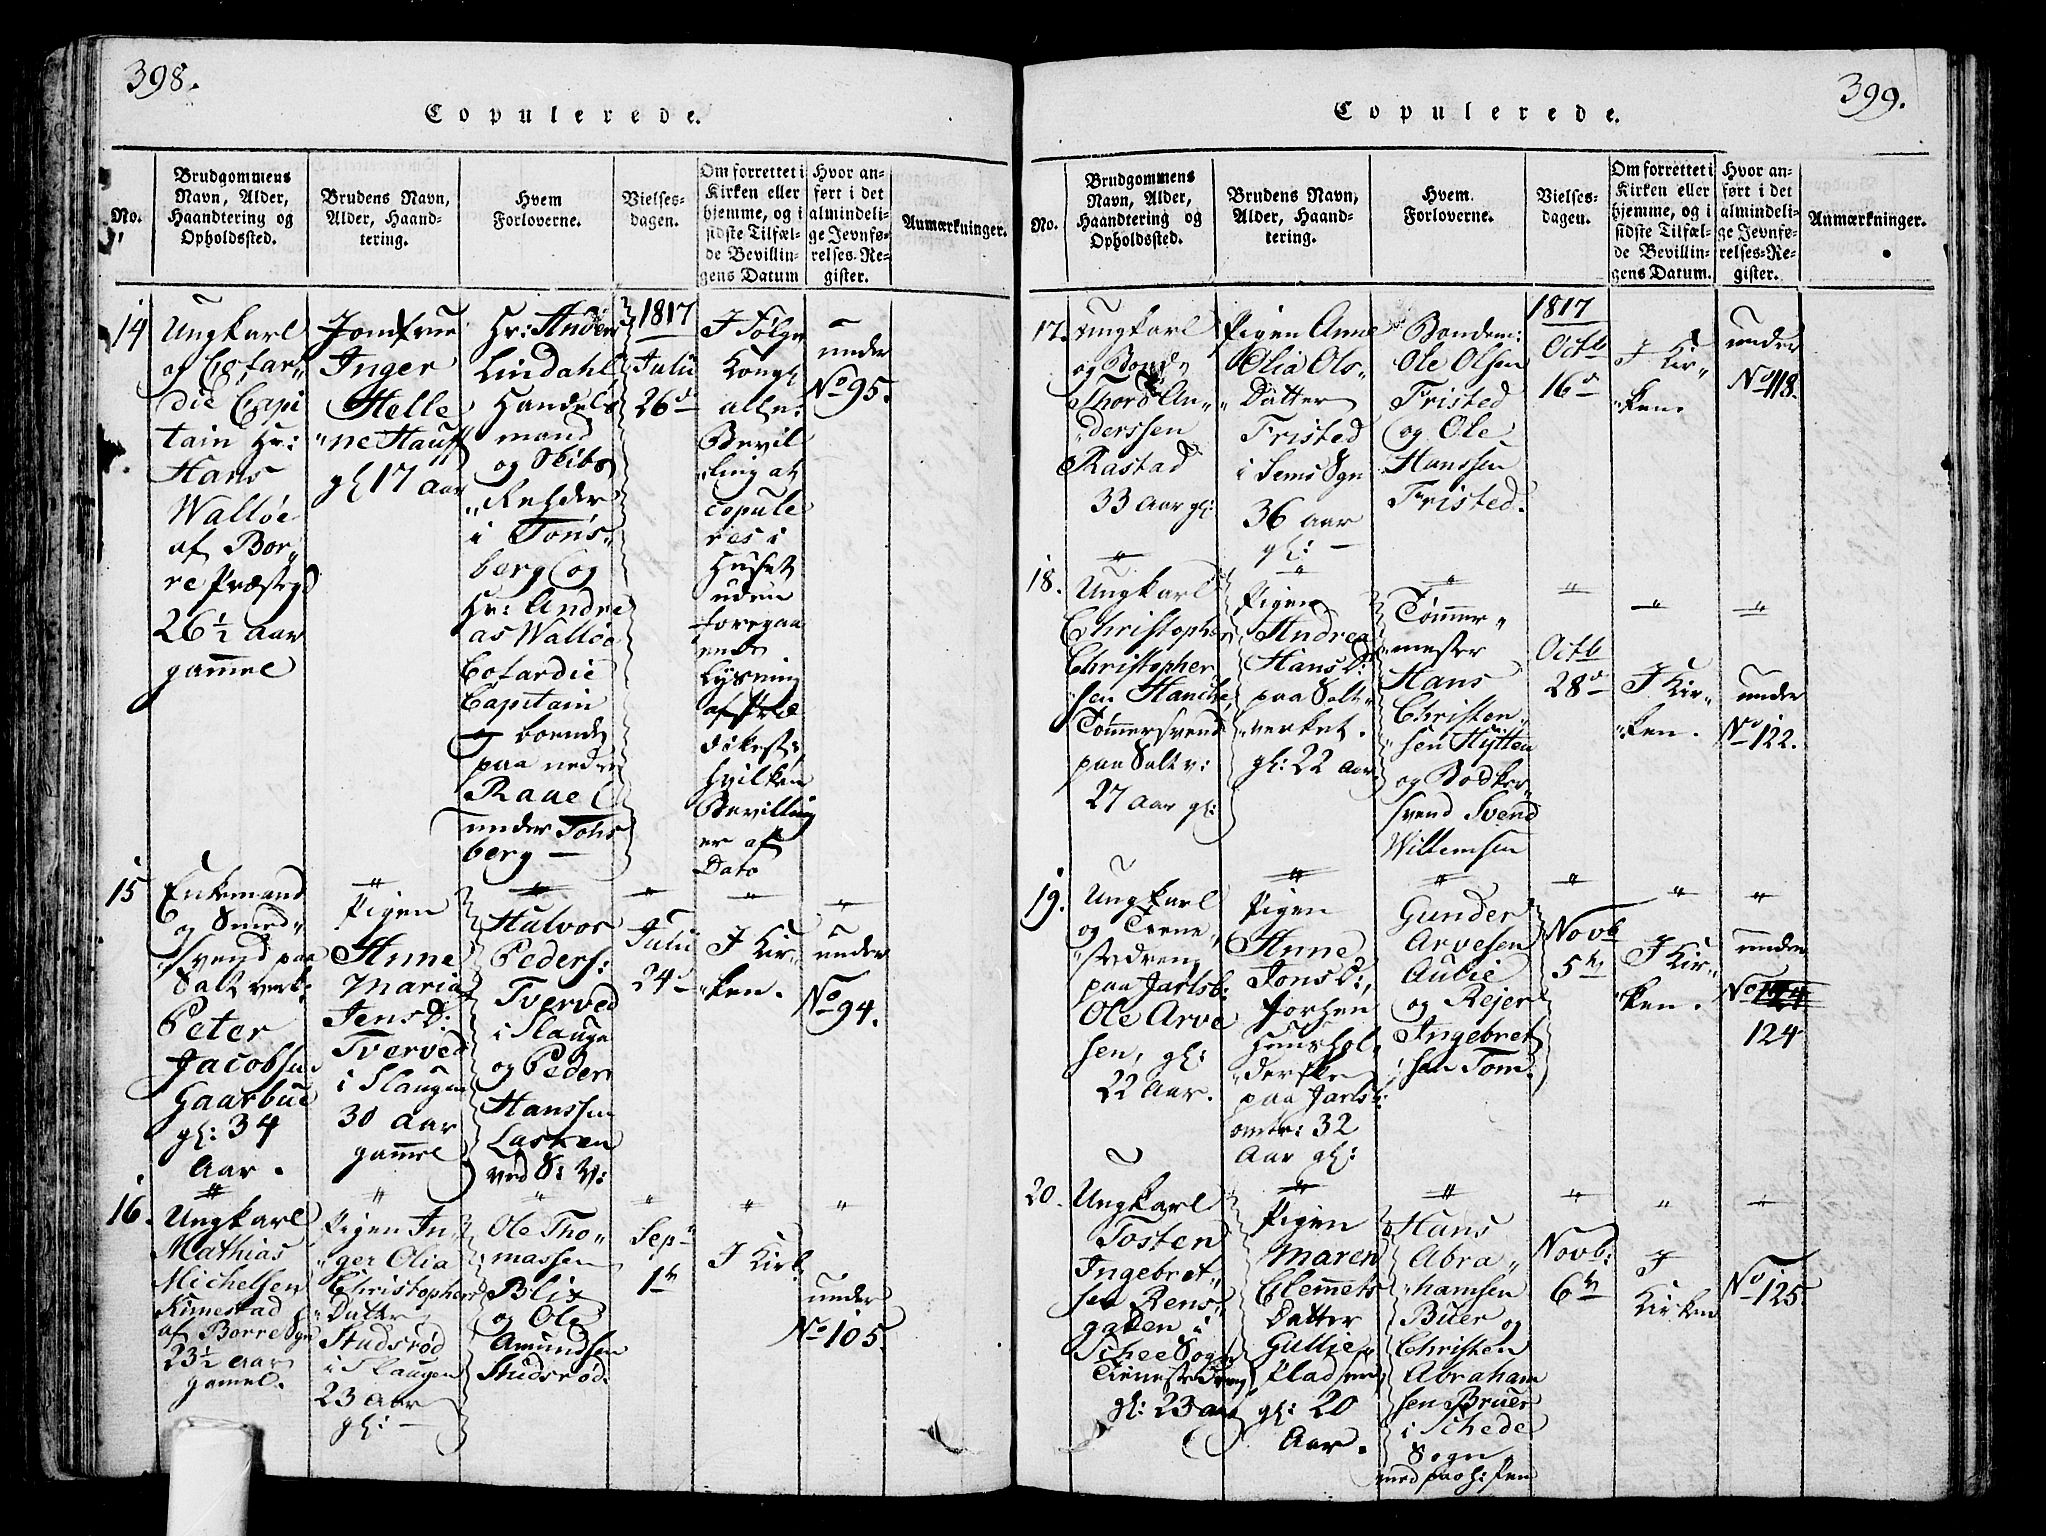 398.
Copulerede.
No.
Brudgommens
Navn, Alder,
Haandtering og
Opholdssted.
Brudens Navn,
Alder, Haand-
tering.
Hvem
Forloverne.
Vielses-
dagen.
Om forrettet i
Kirken eller
hjemme, og i
sidste Tilfæl-
de Bevillin-
gens Datum
Hvor an-
ført i det
almindeli-
ge Jevnfø-
relses-Re-
gister.
Anmærkninger.
14
Ungkarl
og Cofar-
die Capi
tain Hr:
Hans
Walløe
af Bor-
re Præstgd
26½ Aar
gammel
Jomfrue
Inger
Helle
"ne Hauff
gl 17 Aar
Hr: Anders
Lindahl
Handels
mand
og Skibs
"Rehder
i Tøns-
berg og
Hr: Andre
as Walløe
Cofardie
Capitain
og boende
paa nedre
Rauel
under Tøns
berg —
1817
Juli
26d
I Følge
Kongl
aller
Bevil
"ling at
copule
res i
Huset
uden
foregaa
ende
Lysning
af Præ
dikest:
hvilken
Bevilling
er af
Dato
under
No 95.
15
Enkemand
og Smed-
svend paa
Saltverk:
Peter
Jacobsen
Gaarbue
gl: 34
Aar.
Pigen
Anne
Maria
Jens D:
Tverved
i Slaugen
30 Aar
gammel
Halvor
Peders:
Tverved
i Slauge
og Peder
Hanssen
Lasken
ved S: V:
Juli
24d
I Kir-
"ken.
under
No 94.
16.
Ungkarl
Mathias
Michelsen
Kimestad
af Borre Sgn
23½ Aar
gamel.
Pigen In-
"ger Olia
Christophers
"Datter
Studsrød
i Slaugen
23 Aar
gl: —
Ole Tho-
massen
Blix
og Ole
Amundsen
Studsrød.
Sep
1te
I Kirk:
under
No 105.
399.
Copulerede.
No.
Brudgommens
Navn, Alder,
Haandtering og
Opholdssted.
Brudens Navn,
Alder, Haand-
tering.
Hvem
Forloverne.
Vielses-
dagen.
Om forrettet i
Kirken eller
hjemme, og i
sidste Tilfæl-
de Bevillin-
gens Datum.
Hvor an-
ført i det
almindeli-
ge Jevnfø-
relses-Re-
gister.
Anmærkninger.
17.
Ungkarl
og Bond-
Thord An-
"derssen
Rastad
33 Aar gl:
Pigen Anne
Olia Ols-
"Datter
Fristed
i Sems Sgn
36 Aar
gl: —
Bondem:
Ole Olsen
Fristed
og Ole
Hanssen
Fristed.
1817
Octb
16d
I Kir-
"ken.
under
No 118.
18.
Ungkarl
Christopher
Christopher
"sen Hanche,
Tømmersvend
paa Saltv:
27 Aar gl:
Pigen
Andrea
Hans D:
paa Salt-
"verket.
gl: 22 Aar
Tømmer-
"mester
Hans
Christen-
"sen Hytten
og Bødker-
svend Svend
Willemsen
Octb
28d
I Kir-
"ken.
under
No 122.
19.
Ungkarl
og Tiene-
"stedreng
paa Jarlsb:
Ole Arve
sen, gl:
22 Aar.
Pigen
Anne
Jons D:,
forhen
Huushol-
"derske
paa Jarlsb:
32
Aar gl:
Gunder
Arvesen
Aulie
og Rejer
Ingebret
"sen Tom.
Novb
5te
I Kir-
"ken.
under
No
124
20.
Ungkarl
Tosten
Ingebret-
sen Rens-
gaden i
Schee Sogn
Tienestedreng
gl: 23 Aar
Pigen
Maren
Clemmets
Datter
Gullie-
Pladsen,
gl: 20
Aar.
Hans
Abra-
"hamsen
Buer og
Christen
Abraham
sen Bruer
i Schede
Sogn
Novb:
6te
I
Kirken
No 125.